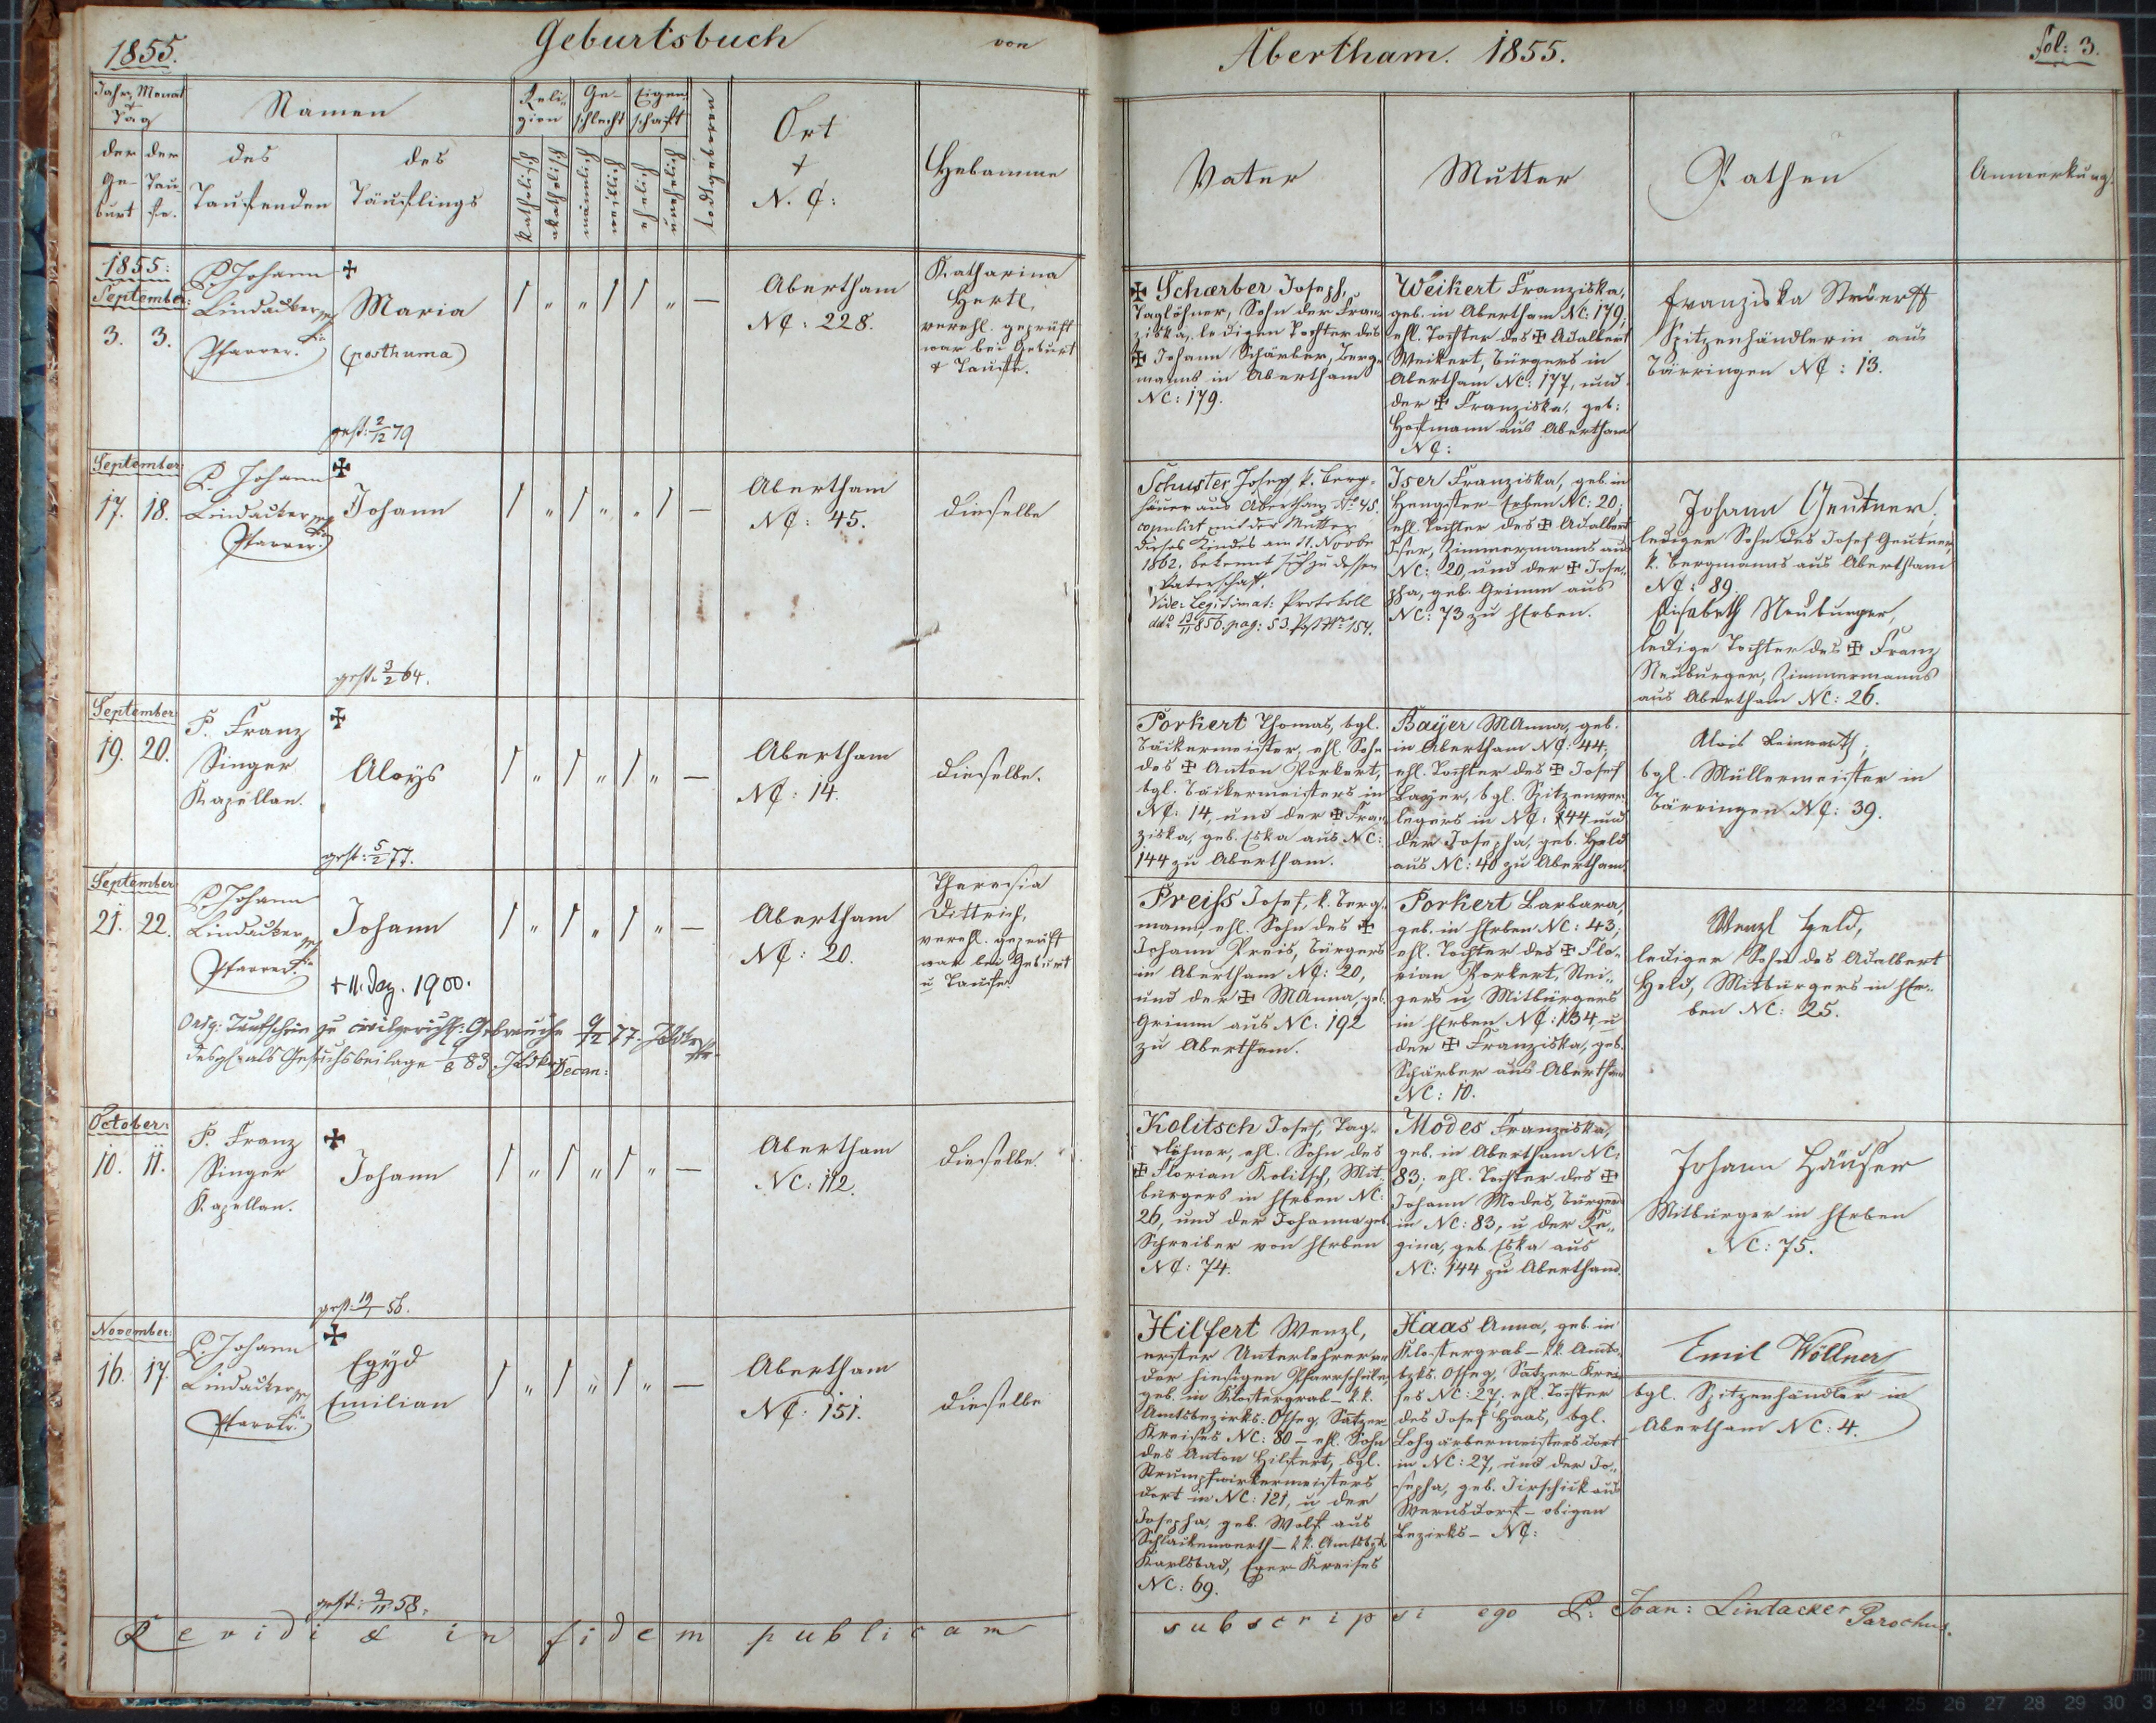 1855.
Geburtsbuch von
Abertham. 1855.
Fol: 3.
Jahr, Monat
Tag
der Ge-
burt
der Tau-
fe.
Namen
des
Taufenden
des
Täuflings
Reli-
gion
katholisch
akatholisch
Ge-
schlecht
männlich
weiblich
Eigen-
schaft
ehelich
unehelich
todtgeboren
Ort
+
N. C:
Hebamme
Vater
Mutter
Pathen
Anmerkung.
1855:
September:
3. 3.
P. Johann
Lindacker
Pfarrer.
Maria
(posthuma)
gest: 2/12 79
Abertham
NC: 228.
Katharina
Hertl,
verehl. geprüft
war bei Geburt
& Taufe.
Schærber Joseph,
Taglöhner, Sohn der Fran-
ziska, ledigen Tochter des
Johann Schärber, Berg-
manns in Abertham
NC: 179.
Weikert Franziska,
geb. in Abertham NC: 179;
ehl. Tochter des Adalbert
Weikert, Bürgers in
Abertham NC: 177, und
der Franziska, geb:
Hofmann aus Abertham
NC:
Franziska
Spitzenhändlerin aus
Bärringen NC: 13.
September:
17. 18.
P. Johann
Lindacker
Pfarrer.
Johann
gest. 3/2 64.
Abertham
NC: 45.
Dieselbe
Schuster Joseph k. Berg-
häuer aus Abertham No 45.
copulirt mit der Mutter
dieses Kindes am 11. Novbr
1862. bekennt sich zu dessen
Vaterschaft.
Vide: Legitimat: Protokoll
pag: 53.
Iser Franziska, geb. in
Hengster-Erben NC: 20;
ehl. Tochter des Adalbert
Iser, Zimmermanns aus
NC: 20, und der Jose-
pha, geb. Grimm aus
NC: 73 zu HErben.
Johann Geutner,
lediger Sohn des Josef Geutner,
k. Bergmanns aus Abertham
NC: 89.
Elisabeth Neuburger,
ledige Tochter des Franz
Neuburger, Zimmermanns
aus Abertham NC: 26.
September
19. 20.
P. Franz
Singer
Kapellan.
Aloys
gest: 5/2 77.
Abertham
NC: 14.
Dieselbe.
Porkert Thomas, bgl.
Bäckermeister, ehl. Sohn
des Anton Porkert,
bgl. Bäckermeisters in
NC: 14, und der Fran-
ziska, geb. Eska aus NC:
144 zu Abertham.
Baÿer MAnna, geb.
in Abertham NC: 44;
ehl. Tochter des Josef
Baÿer, bgl. Spitzenver-
legers in NC: 144 und
der Josepha, geb. Held
aus NC: 40 zu Abertham.
Alois
bgl. Müllermeister in
Bärringen NC: 39.
September
21. 22.
P. Johann
Lindacker
Pfarrer.
Johann
+ 11. Dez. 1900.
Orig: Taufschein zu civilgerichtl: Gebrauche 9/2 77.
als Gesuchsbeilage 1/8 83. Decan:
Abertham
NC: 20.
Theresia
Dittrich,
verehl. geprüft
war bei Geburt
u Taufe.
Preiss Josef, k. Berg-
mann, ehl. Sohn des
Johann Preis, Bürgers
in Abertham NC: 20,
und der MAnna, geb.
Grimm aus NC: 192
zu Abertham.
Porkert Barbara,
geb. in HErben NC: 43;
ehl. Tochter des Flo-
rian Porkert, Stei-
gers u. Mitbürgers
in HErben NC: 134, u
der Franziska, geb.
Schärber aus Abertham
NC: 10.
Wenzl Held,
lediger Sohn des Adalbert
Held, Mitbürgers in HEr-
ben NC: 25.
October:
10. 11.
P. Franz
Singer
Kapellan.
Johann
gest: 19/ 56.
Abertham
NC: 112.
Dieselbe.
Kolitsch Josef, Tag-
löhner, ehl. Sohn des
Florian Kolitsch, Mit-
bürgers in HErben NC:
26, und der Johanna geb.
Schreiber von HErben
NC: 74.
Modes Franziska,
geb. in Abertham NC:
83; ehl. Tochter des
Johann Modes, Bürgers
in NC: 83, u der Re-
gina, geb. Eska aus
NC: 144 zu Abertham.
Johann Häuser
Mitbürger in HErben
NC: 75.
November:
16. 17.
P. Johann
Lindacker
Pfarrer.
Egyd
Emilian
gest: 9/11 58.
Abertham
NC: 151.
Dieselbe
Hilfert Wenzl,
erster Unterlehrer an
der hiesigen Pfarrschule,
geb. in Klostergrab – k.k.
Amtsbezirks: Osseg, Satzer-
Kreises NC: 80 – ehl. Sohn
des Anton Hilfert, bgl.
Strumpfwirkermeisters
dort in NC: 121, u der
Josepha, geb. Wolf aus
Schlackenwerth – k.k. Amtsbzk
Karlsbad, Eger-Kreises
NC: 69.
Haas Anna, geb. in
Klostergrab – k.k. Amts-
bzks. Osseg, Satzer-Krei-
ses NC: 27, ehl. Tochter
des Josef Haas, bgl.
Lohgärbermeisters dort
in NC: 27, und der Jo-
sepha, geb. Tirschick aus
Wernsdorf – obigen
Bezirks – NC:
Emil Wöllner
bgl. Spitzenhändler in
Abertham NC: 4.
Revidi & in fidem publicam subscripsi ego P. Joan: Lindacker Parochus.